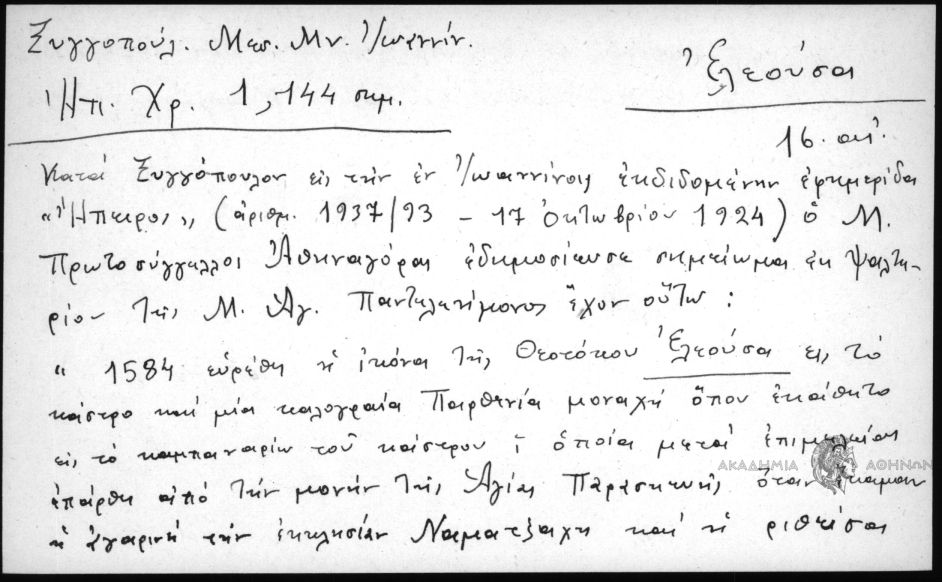 Ξυγγοπούλ. Μεσ. Μν. Ἰωαννίν.
Ἐλεούσα
Ἠπ. Χρ. 1, 144 σημ.
16. αἰ.
Κατά Ξυγγόπουλον εἰς τήν ἐν Ἰωαννίνοις ἐκδιδομένην ἐφημερίδα
"Ἤπειρος,, (ἀριθμ. 1937/93 - 17 Ὀκτωβρίου 1924) ὁ Μ.
Πρωτοσύγγελλος Ἀθηναγόρας ἐδημοσίευσε σημείωμα ἐκ Ψαλτη-
ρίου τῆς Μ. Ἁγ. Παντελεήμονος ἔχον οὕτω :
" 1584 εὑρέθη ἡ εἰκόνα τῆς Θεοτόκου Ἐλεούσα εἰς τό
κάστρο καί μία καλογραία Παρθενία μοναχή ὅπου ἐκάθητο
εἰς τό καμπαναρίῳ τοῦ κάστρου ἡ ὁποία μετά ἐπιμελείας
ἐπάρθη ἀπό τήν μονήν τῆς Ἁγίας Παρασκευῆς ὅταν ἔκαμαν
ἀγαρινοί τήν ἐκκλησίαν Ναματζάχη καί ἡ ριθεῖσα
ΑΚΑΔΗΜΙΑ ΑΘΗΝΩΝ